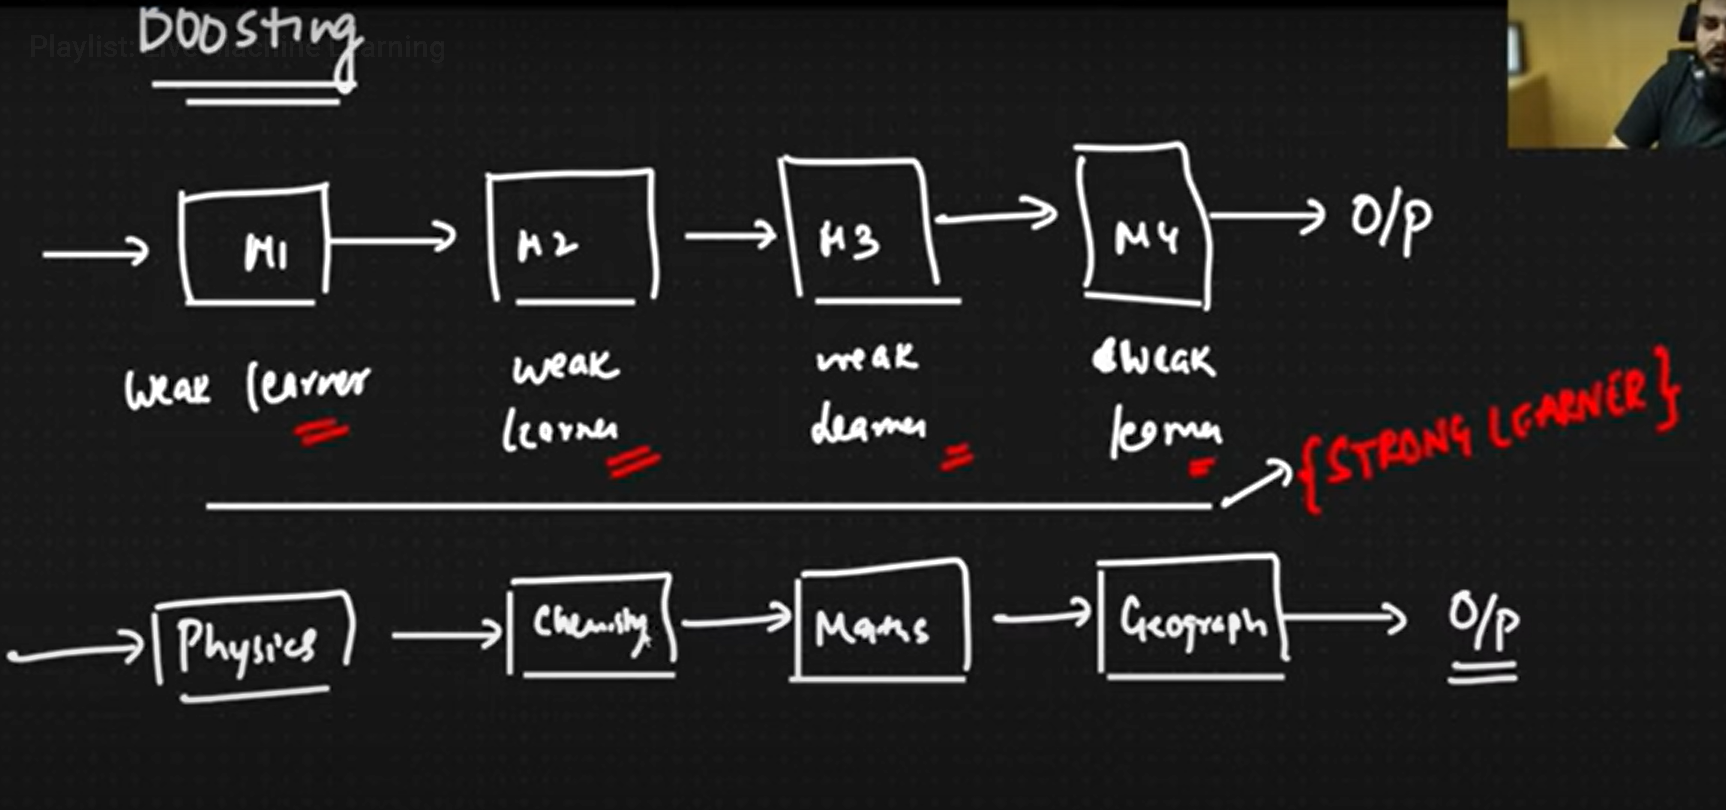 Boosting
Playlist: Live Machine Learning
M1 M2 M3 M4 O/P
weak learner
weak learner
weak learner
weak learner
{STRONG LEARNER}
Physics Chemistry Maths Geograph O/P